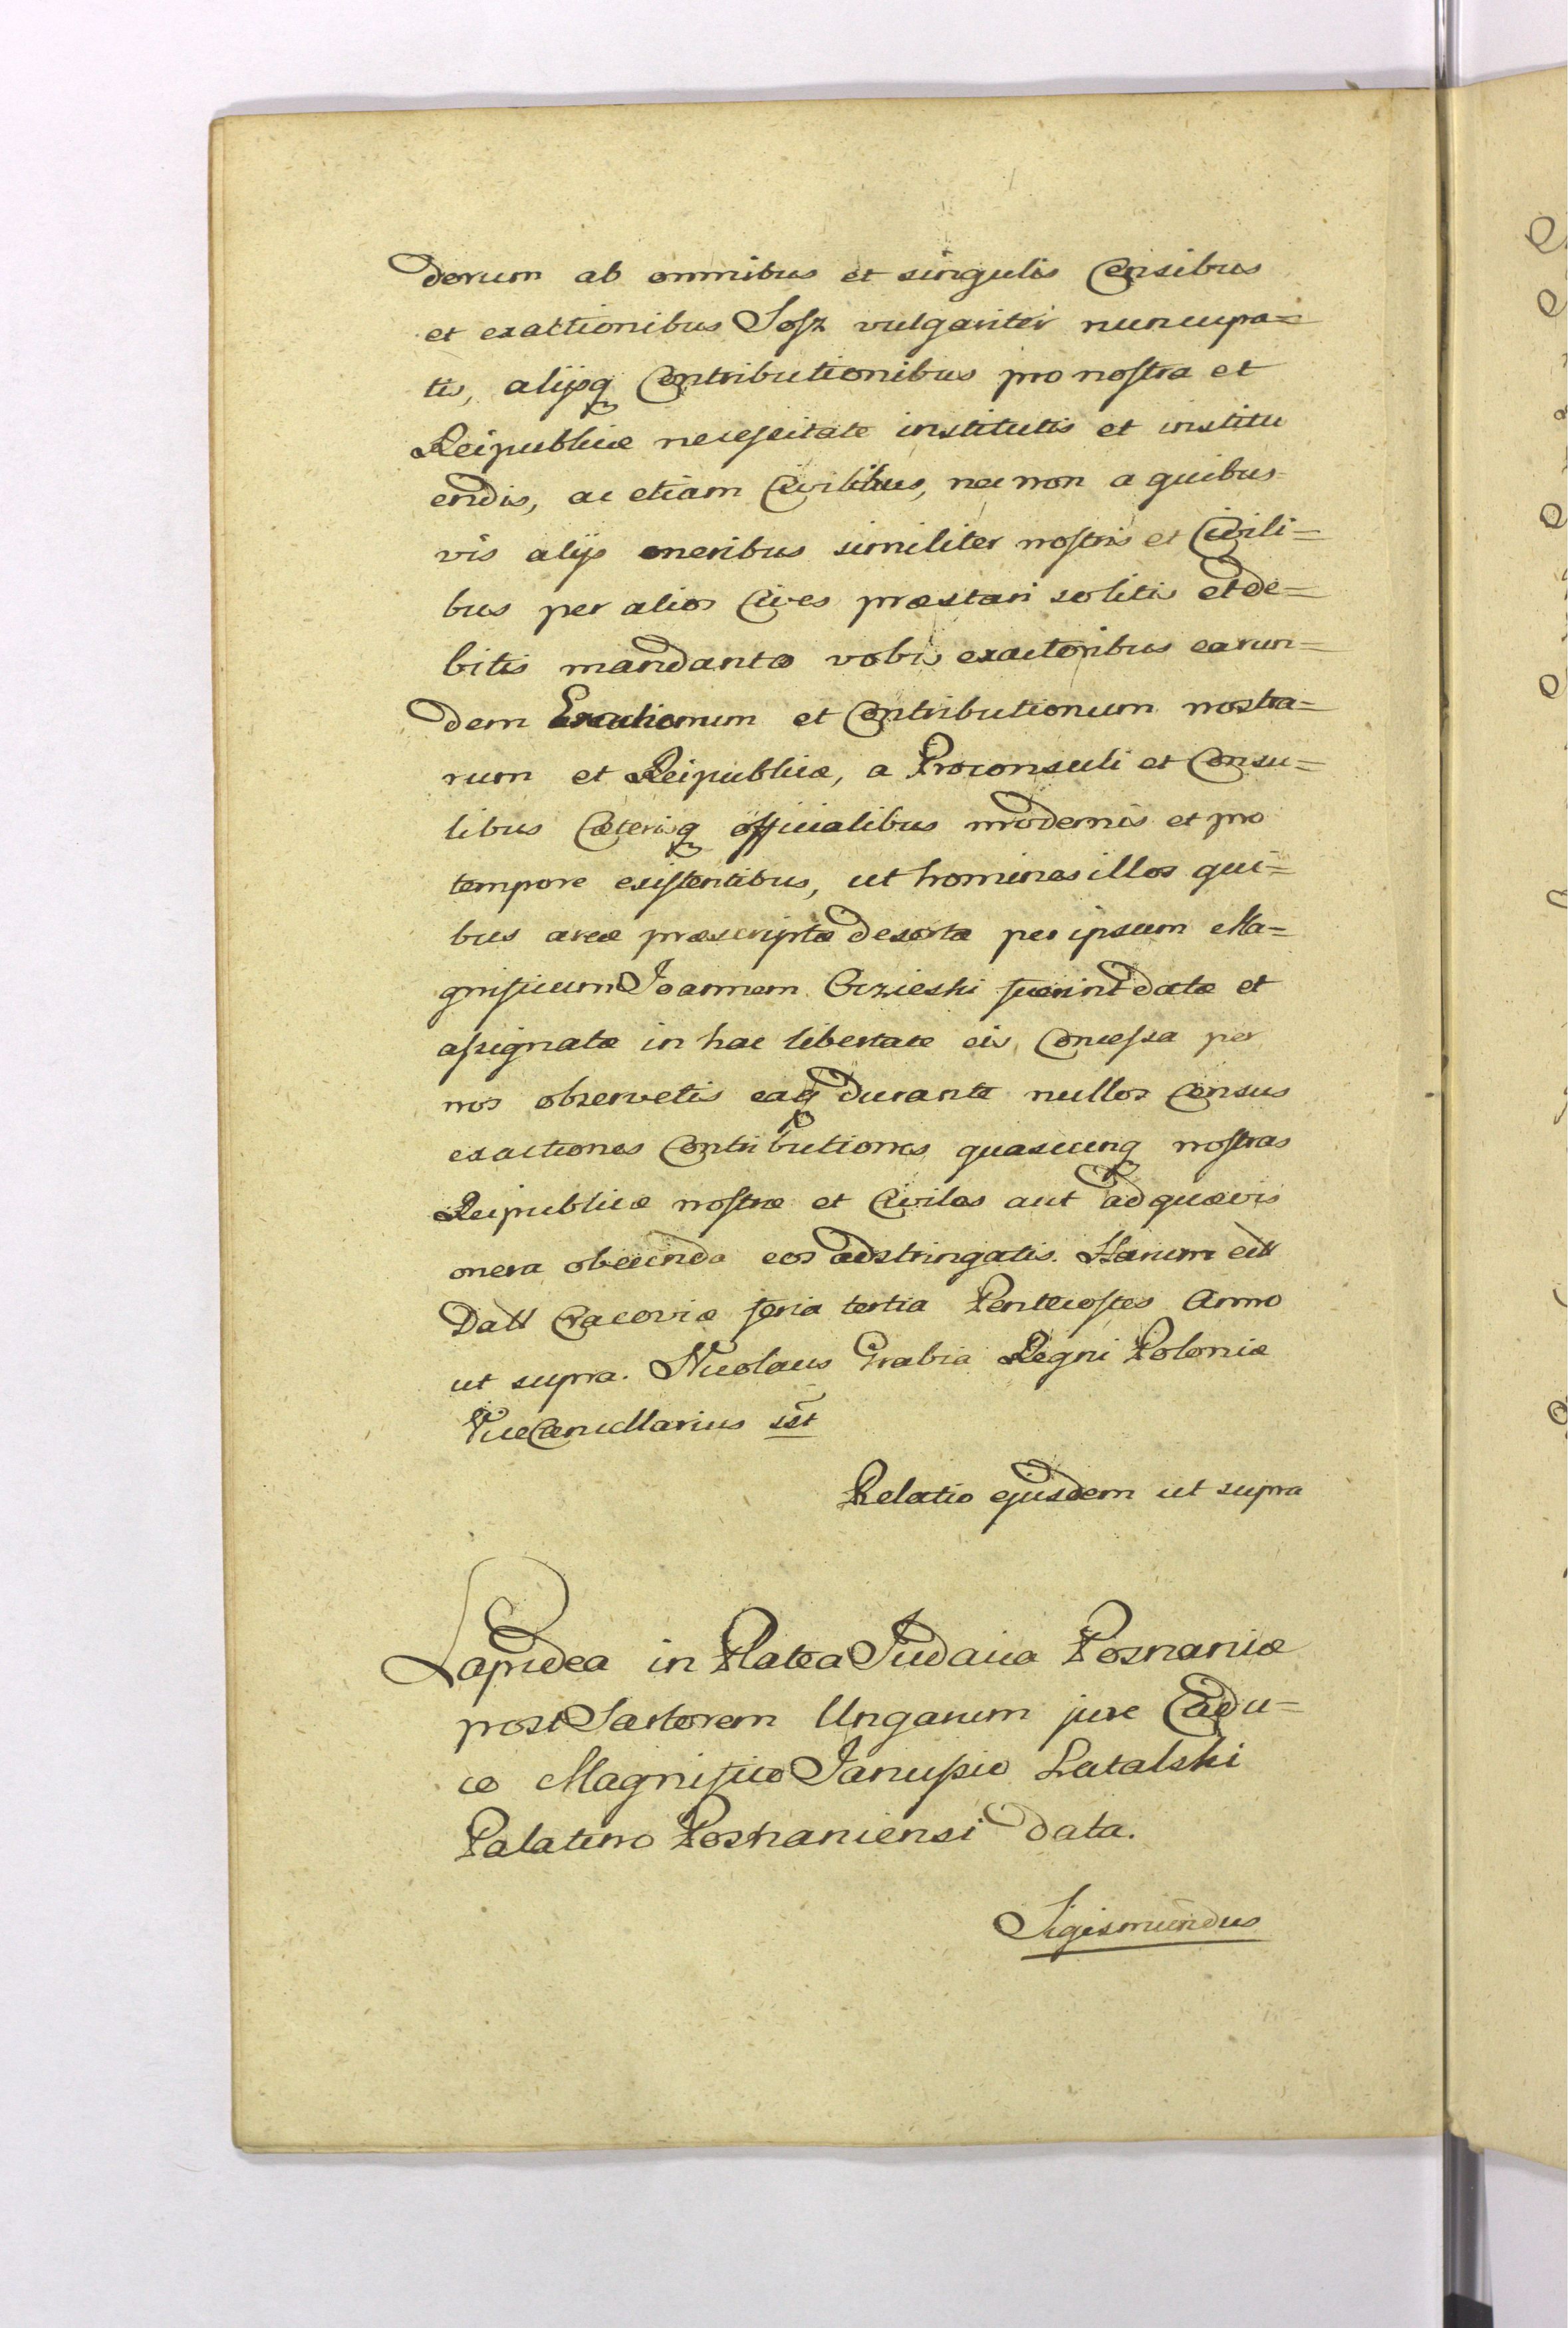 dorum ab omnibus et singulis Censibus
et exactionibus Sosz vulgariter nuncupa=
tis, alijsq Contributionibus pro nostra et
Reipublicæ necessitate institutis et institu
endis, ac etiam Civilibus, nec non a quibus
vis alijs oneribus similiter nostris et Civili=
bus per alios Cives præstari solitis et de=
bitis mandantes vobis exactoribus earun=
dem Exactionum et Contributionum nostra=
rum et Reipublicæ, a Proconsuli et Consu=
libus Cæterisq officialibus modernis et pro
tempore existentibus, ut homines illos qui=
bus areæ præscriptæ desertæ per ipsum Ma=
gnificum Joannem fuerint datæ et
assignatæ in hac libertate eis Concessa per
nos observetis eaq durante nullos Census
exactiones Contributiones quascunq nostras
Reipublicæ nostræ et Civiles aut ad quævis
onera obeunda eos adstringatis. Harum ett
Datt Cracoviæ feria tertia Pentecostes Anno
ut supra. Nicolaus Grabia Regni Poloniæ
ViceCancellarius sst
Relatio ejusdem ut supra
Lapidea in Platea Judaica Posnaniæ
post Sartorem Ungarum jure Cadu=
co Magnifico Janussio Latalski
Palatino Posnaniensi data.
Sigismundus